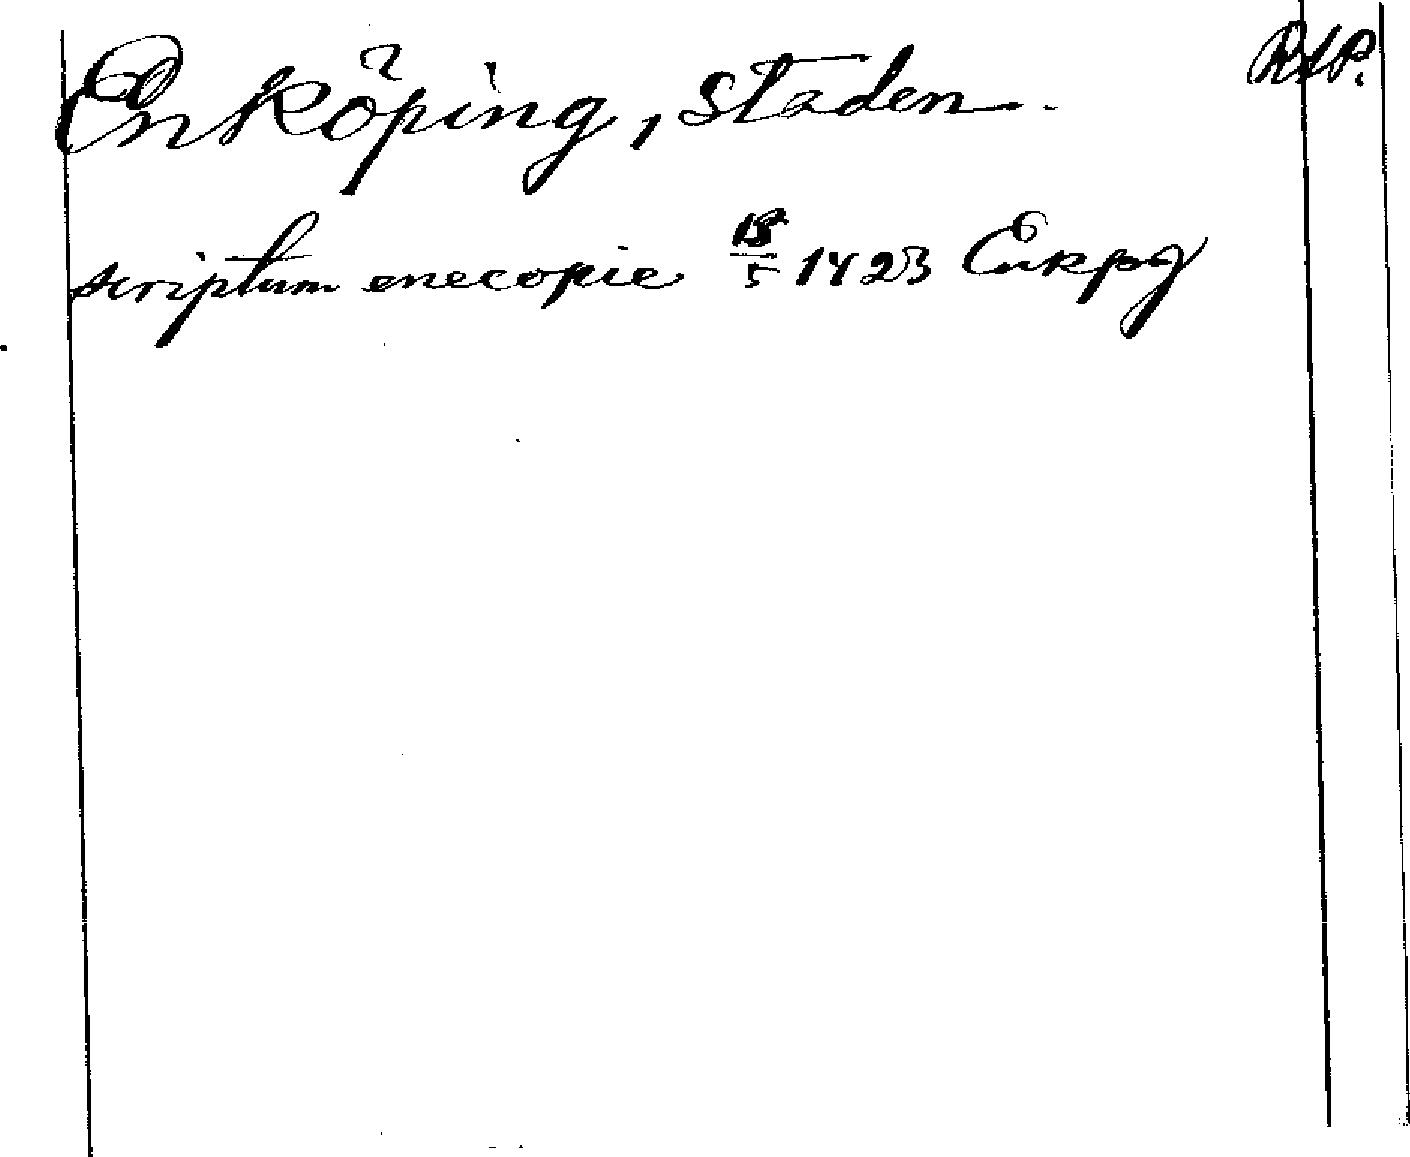 Enköping, staden. RAP.
scriptum enecopie 15/5 1423 Enkpg